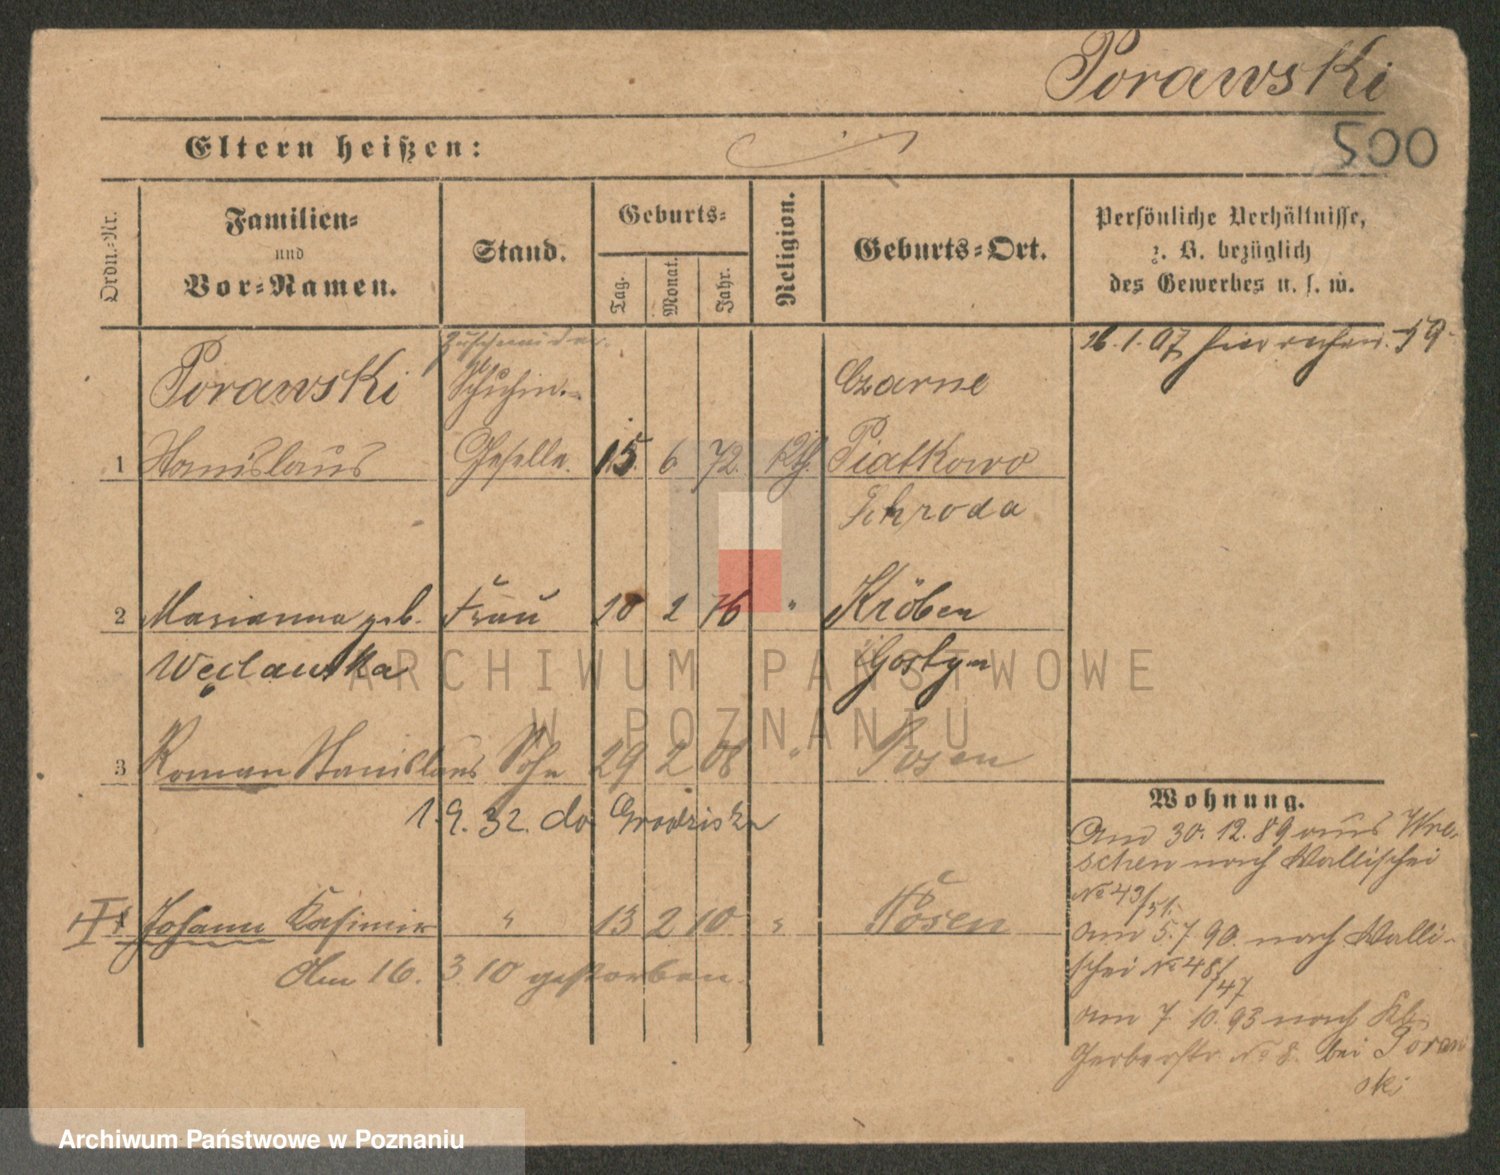 Porawski
500
Eltern heißen:
Ordn.-Nr.
Familien-
und
Vor-Namen.
Stand.
Geburts-
Tag.
Monat.
Jahr.
Religion.
Geburts-Ort.
Persönliche Verhältnisse,
z. B. bezüglich
des Gewerbes u. s. w.
Zuschneider
26.1.07
59
Porawski
Schuhm.
Czarne
1 Stanislaus Geselle. 15. 6 72. Kth. Piatkowo
Schroda
2 Marianna geb. Frau 20 2 76 " Kröben
Węclawska Gostyn
3 Roman Stanislaus Sohn 29 2 08 " Posen
1.9.32. do Grodziska
Wohnung.
Am 30.12.89 aus Wre-
schen nach Wallischei
No 43/51.
4 † Johann Kasimir " 13 2 10 " Posen
Am 16. 3 10 gestorben.
am 5.7 90. nach Walli-
schei No 48/47
am 7.10.93 nach Kl.
Gerberstr. No 8. bei Poraw
ski
ARCHIWUM PAŃSTWOWE
W POZNANIU
Archiwum Państwowe w Poznaniu